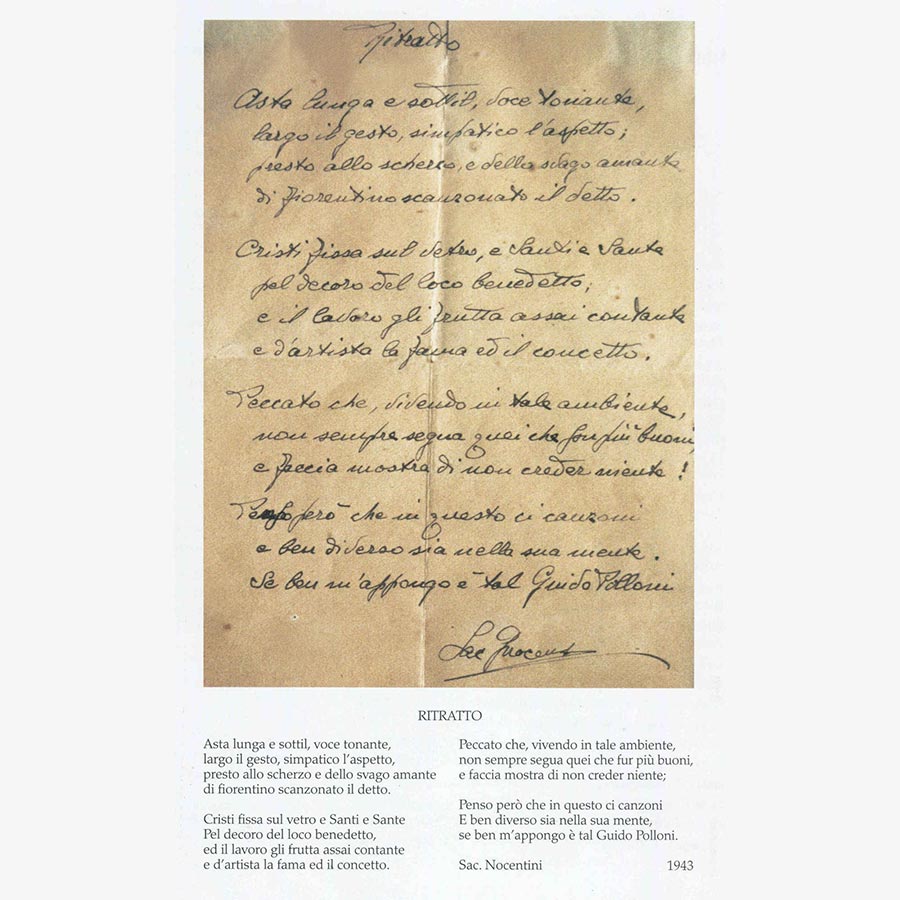 Ritratto
Asta lunga e sottil, voce tonante,
largo il gesto, simpatico l'aspetto;
presto allo scherzo, e dello svago amante
di fiorentino scanzonato il detto.
Cristi fissa sul vetro, e Santi e Sante
pel decoro del loco benedetto;
e il lavoro gli frutta assai contante
e d'artista la fama ed il concetto.
Peccato che, vivendo in tale ambiente,
non sempre segua quei che fur più buoni
e faccia mostra di non creder niente!
Penso però che in questo ci canzoni
e ben diverso sia nella sua mente.
Se ben m'appongo è tal Guido Polloni
Sac Nocentini
RITRATTO
Asta lunga e sottil, voce tonante,
largo il gesto, simpatico l'aspetto,
presto allo scherzo e dello svago amante
di fiorentino scanzonato il detto.
Cristi fissa sul vetro e Santi e Sante
Pel decoro del loco benedetto,
ed il lavoro gli frutta assai contante
e d'artista la fama ed il concetto.
Peccato che, vivendo in tale ambiente,
non sempre segua quei che fur più buoni,
e faccia mostra di non creder niente;
Penso però che in questo ci canzoni
E ben diverso sia nella sua mente,
se ben m'appongo è tal Guido Polloni.
Sac. Nocentini 1943